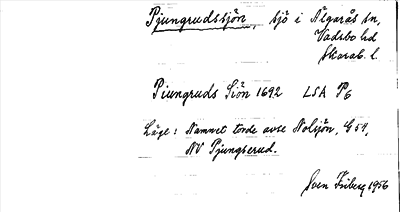 Pjungrudssjön, sjö i Älgarås sn,
Vadsbo hd
Skarab. l.
Piungruds Siön 1692 LSA P6
Läge: Namnet torde avse Nolsjön, G 59,
NV Pjungserud.
Sven Friberg 1956